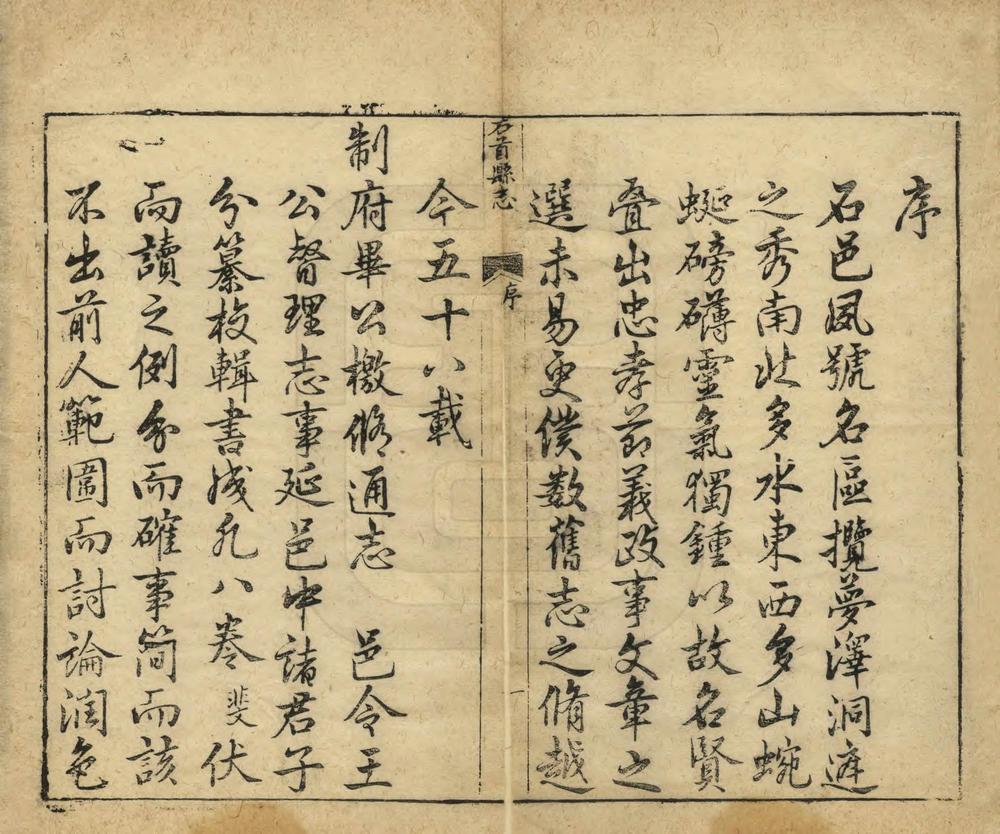 序
石邑夙號名區攬夢澤洞庭
之秀南北多水東西多山蜿
蜒磅礴靈氣獨鍾以故名賢
疊出忠孝節義政事文章之
選未易更僕數舊志之脩越
石首縣志
序
今五十八載
制府畢公檄脩通志 邑令王
公督理志事延邑中諸君子
分纂校輯書成凡八卷斐伏
而讀之例分而確事簡而該
不出前人範圍而討論潤色